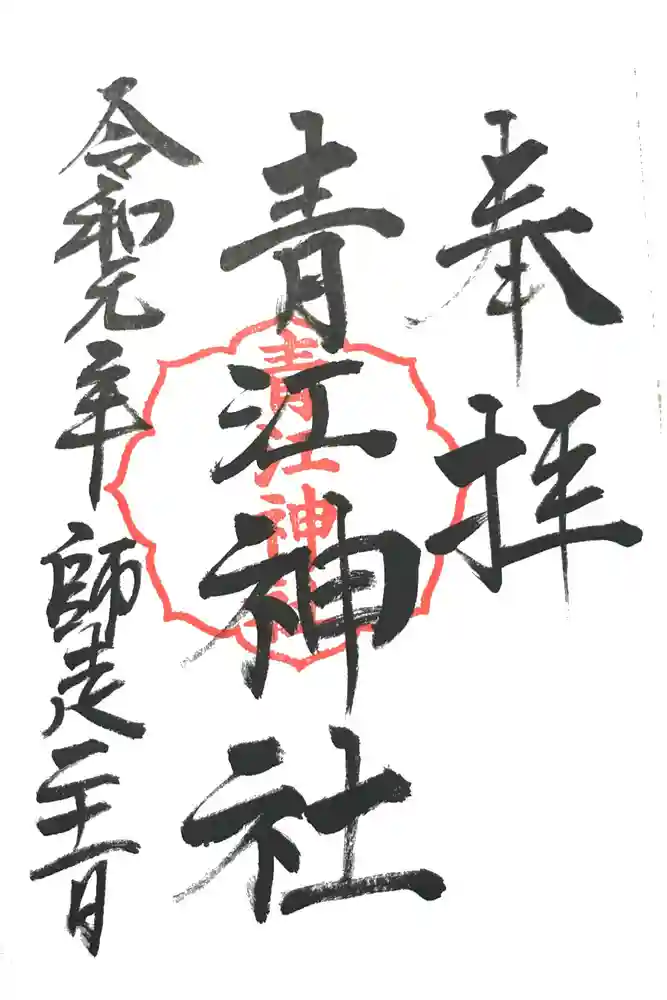 奉拝
青江神社
青江神社
令和元年 師走二十 日